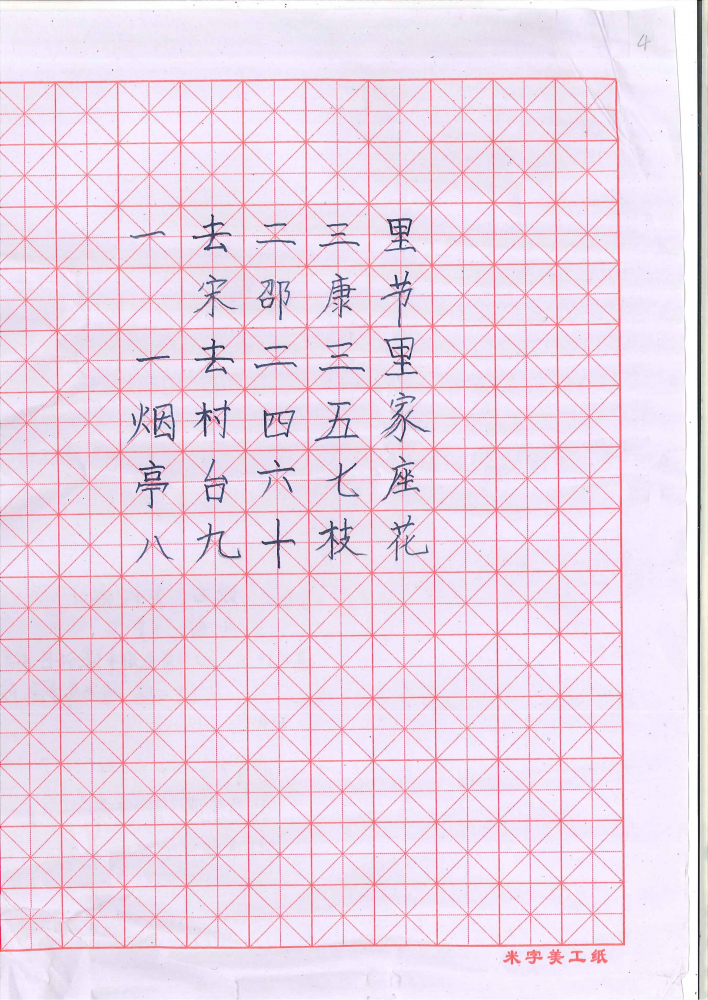 4
一去二三里
宋邵康节
一去二三里
烟村四五家
亭台六七座
八九十枝花
米字美工纸